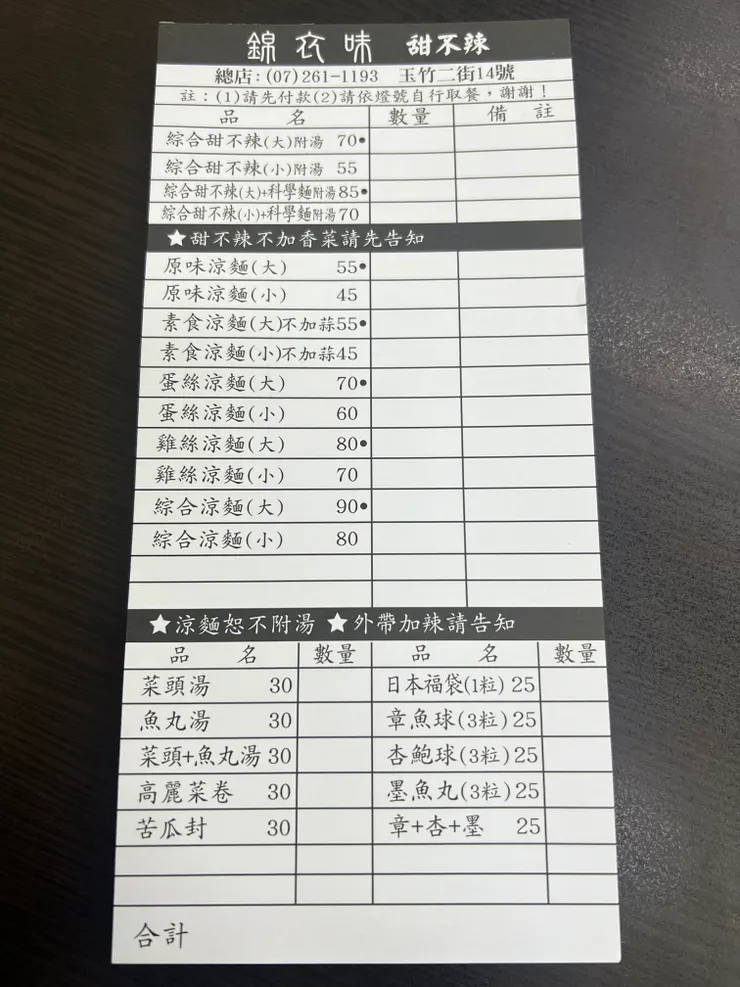 錦衣味 甜不辣
總店:(07)261-1193 玉竹二街14號
註:(1)請先付款(2)請依燈號自行取餐,謝謝!
品名 數量 備註
綜合甜不辣(大)附湯 70●
綜合甜不辣(小)附湯 55
綜合甜不辣(大)+科學麵附湯85●
綜合甜不辣(小)+科學麵附湯70
★甜不辣不加香菜請先告知
原味涼麵(大) 55●
原味涼麵(小) 45
素食涼麵(大)不加蒜55●
素食涼麵(小)不加蒜45
蛋絲涼麵(大) 70●
蛋絲涼麵(小) 60
雞絲涼麵(大) 80●
雞絲涼麵(小) 70
綜合涼麵(大) 90●
綜合涼麵(小) 80
★涼麵恕不附湯 ★外帶加辣請告知
品名 數量 品名 數量
菜頭湯 30 日本福袋(1粒) 25
魚丸湯 30 章魚球(3粒) 25
菜頭+魚丸湯 30 杏鮑球(3粒) 25
高麗菜卷 30 墨魚丸(3粒) 25
苦瓜封 30 章+杏+墨 25
合計